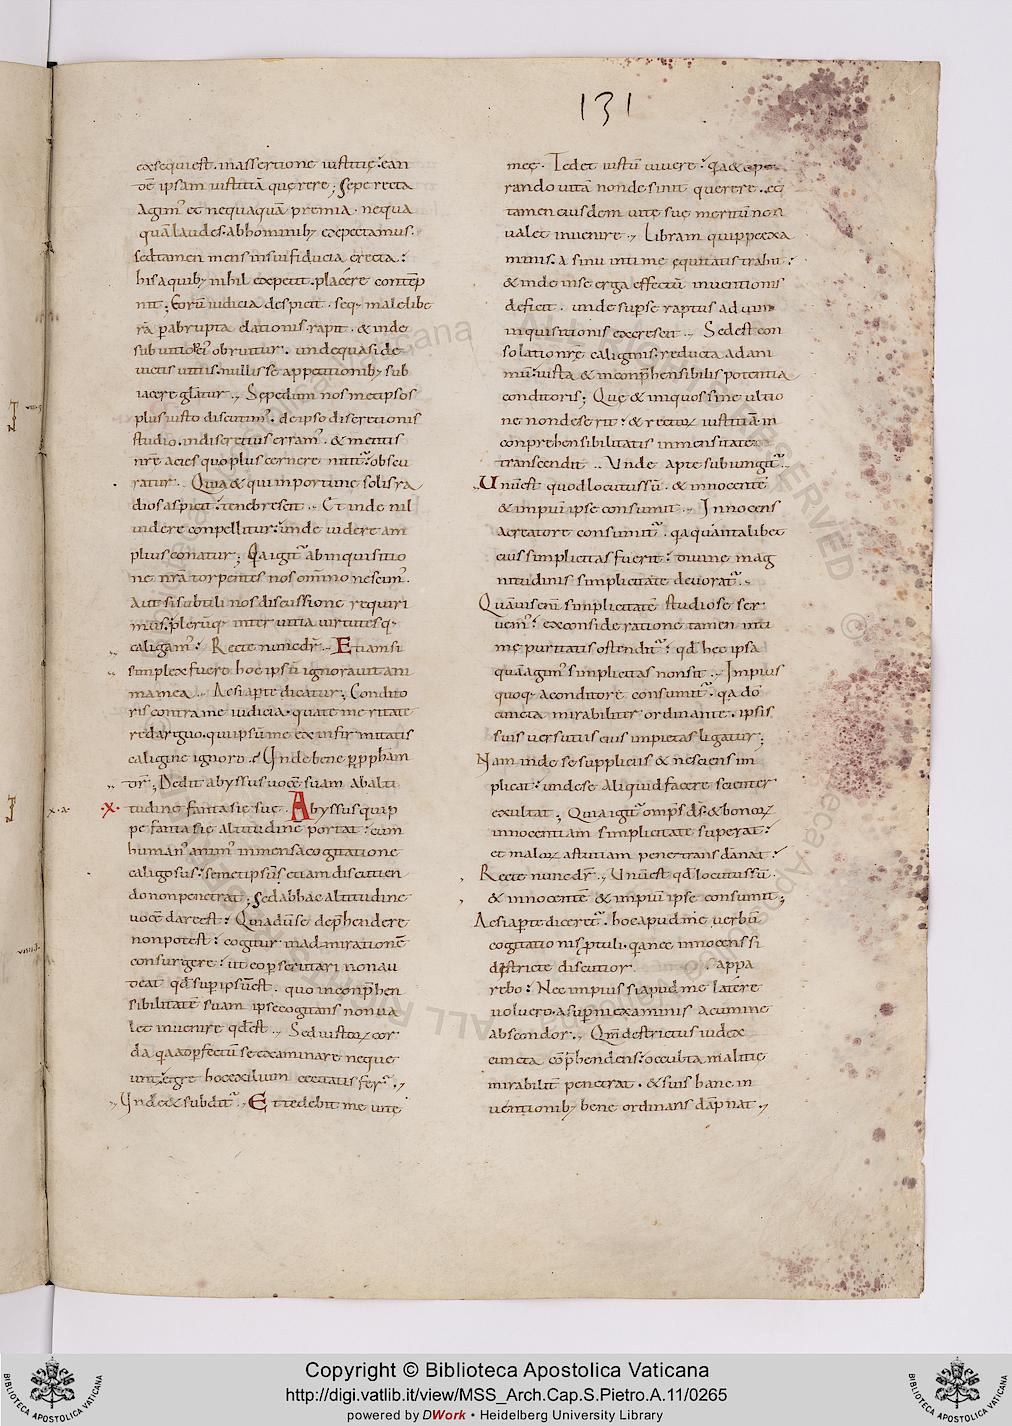 131
exsequi est. in assertione iustitię? ean
dē ipsam iustitiā quęrere; Sepe recta
Agim' et nequaquā premia. nequa
quā laudes. ab hominib; exspectamus.
sed tamen mens in sui fiducia erecta:
his a quib; nihil expetit. placére contēp
nit; Eorū iudicia despicit. seq; male libe
rā p abrupta elationis rapit. & inde
sub uitio
uictis uitiis. nullis se appetitionib; sub
iacere gl̄atur., Sepe dum nosmetipsos
plus iusto discutim'. de ipso discretionis
studio. indiscretius erram'. & mentis
nrē acies quo plus cernere nitit̄: obscu
ratur.. Quia & qui inportune solis ra
dios aspicit: tenebrescit.. Et inde nil
uidere conpellitur: unde uidere am
plius conatur; Qa igit̄ ab inquisitio
ne nrā torpentes nos omīno nescim'.
Aut si subtili nos discussione requiri
mus: plerūq; inter uitia uirtutesq;
caligam': Recte nunc dr̄.. Etiam si
simplex fuero hoc ipsū ignorauit ani
ma mea., Ac si apte dicatur; Condito
ris contra me iudicia. qua temeritate
redarguo. qui ipsum me ex infirmitatis
caligine ignoro.? Unde bene p pphām
Dedit abyssus uocē suam. ab alti
x. a. X. tudine fantasię suę. Abyssus quip
pe fantasię altitudinē portat: cum
human' anim' inmensa cogitatione
caligosus: semetipsū etiam discutien
do non penetrat; Sed ab hac altitudine
uocē dare est: Quia dum se dep̄hendere
non potest: cogitur in admirationē
consurgere: ut eo p scrutari non au
deat qđ sup ipsū est. quo inconp̄hen
sibilitatē suam ipse cogitans non ua
let inuenire qđ est., Sed iustoꝝ cor
da qa ad pfectū se examinare neque
unt: egre hoc exilium cecitatis fer̄.,
Unde & subdit̄., Et tedebit me uitę
meę. Tedet iustū uiuere: qa &
rando uitā non desinit querere. et
tamen eiusdem uitę suę meritū non
ualet inuenire., Libram quippe exa
minis. a sinu intimę equitatis trahit:
& inde in se erga effectū inuentionis
deficit. unde sup se raptus ad uim
inquisitionis excrescit.. Sed est con
solatio nrē caliginis. reducta ad ani
mū: iusta & inconp̄hensibilis potentia
conditoris; Quę & iniquos sine ultio
ne non deserit: & rectoꝝ iustitiā in
conprehensibilitatis inmensitate
transcendit.. Unde apte subiungit̄..
Unū est quod locutus sū. & innocentē
& impiū ipse consumit., Innocens
a creatore consumit̄. qa quantalibet
eius simplicitas fuerit: diuinę mag
nitudinis simplicitate deuorat̄..
Quāuis enī simplicitatē studiose ser
uem': ex consideratione tamen inti
mę puritatis ostendit̄: qđ hec ipsa
quā agim' simplicitas non sit., Impius
quoq; a conditore consumit̄. qa dō
cuncta mirabiliter ordinante. ipsis
suis uersutiis eius impietas ligatur;
Nam inde se suppliciis & nesciens im
plicat: unde se aliquid facere scienter
exultat; Quia igit̄ omps ds. & bonoꝝ
innocentiam simplicitate superat:
et maloꝝ astutiam penetrans dānat:
Recte nunc dr̄., Unū est qđ locutus sū.
& innocentē & impiū ipse consumit;
Ac si apte diceret̄. hoc apud me uerbū
cogitationis ptuli. qa nec innocens si
districte discutior. appa
rebo: Nec impius si apud me latére
uoluero. a sup̄ni examinis acumine
abscondor., Qm̄ destrictus iudex
cuncta cōp̄hendens: occulta malitię
mirabilit̄ penetrat. & suis hanc in
uentionib; bene ordinans dāpnat.,